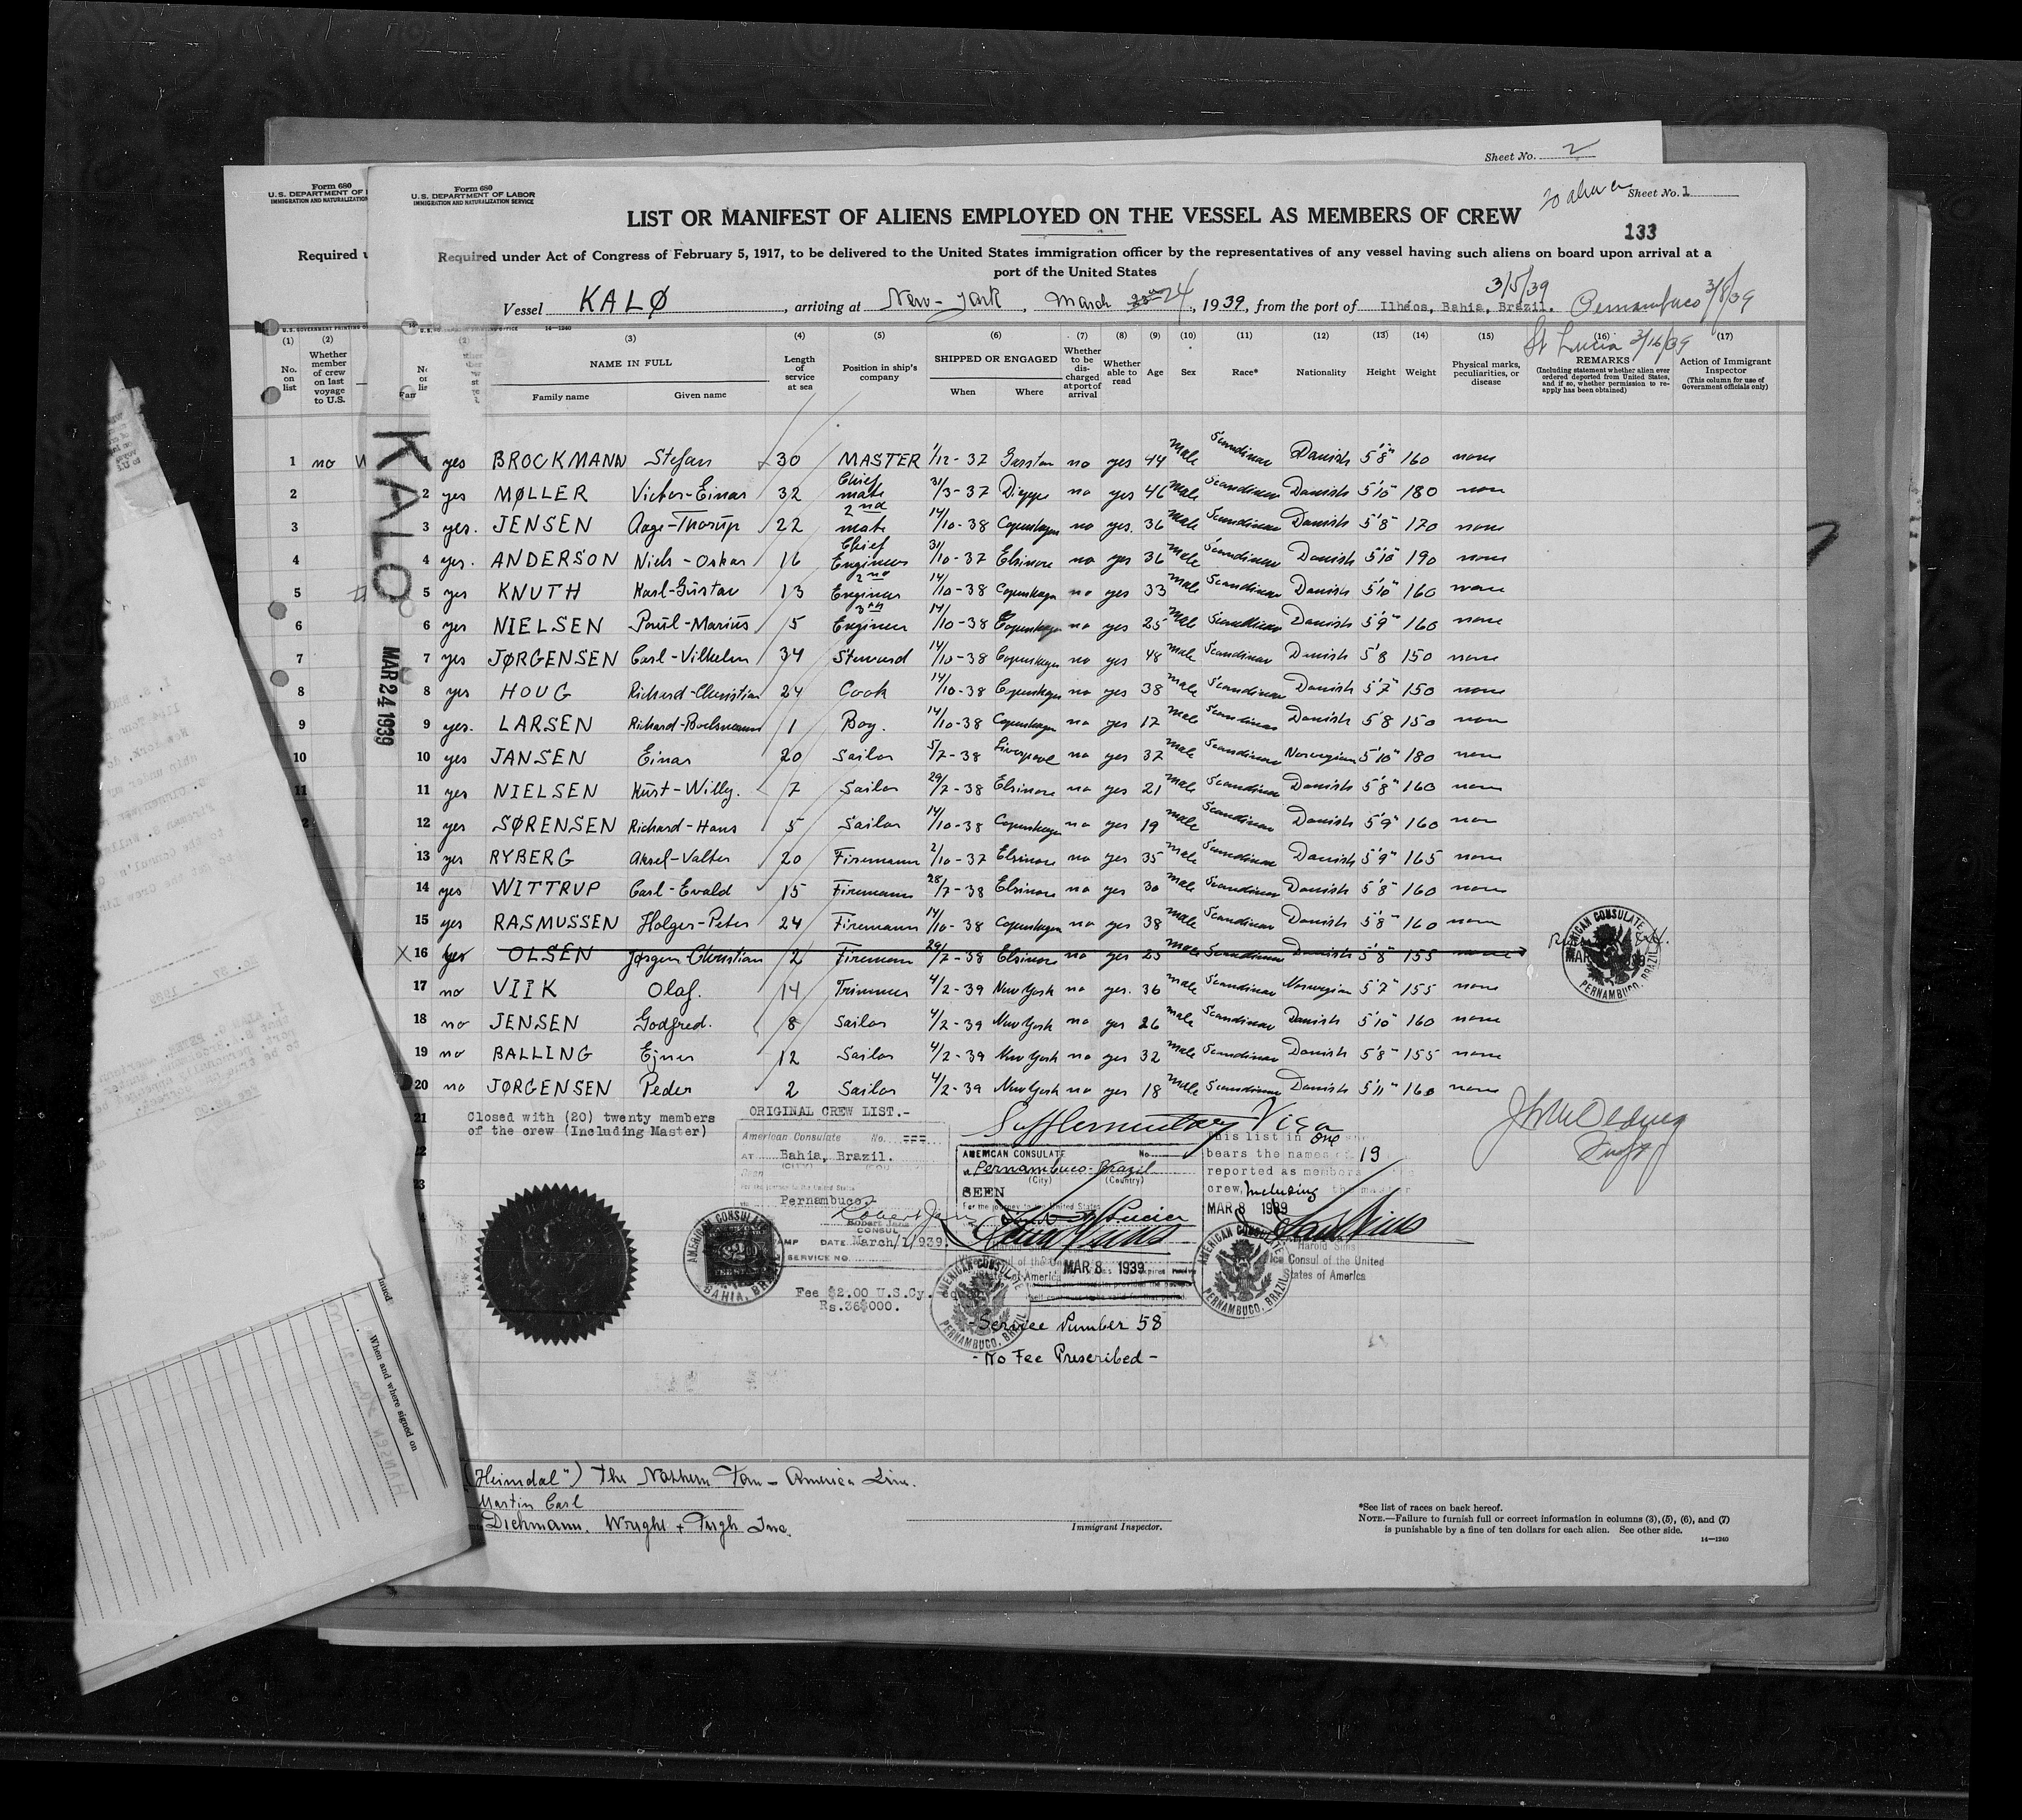 Sheet No. 2
Form 680
U.S. DEPARTMENT OF
IMMIGRATION AND NATURALIZATION
Required
Form 680
U.S. DEPARTMENT OF LABOR
IMMIGRATION AND NATURALIZATION SERVICE
Sheet No. 1
LIST OR MANIFEST OF ALIENS EMPLOYED ON THE VESSEL AS MEMBERS OF CREW
133
Required under Act of Congress of February 5, 1917, to be delivered to the United States immigration officer by the representatives of any vessel having such aliens on board upon arrival at a
port of the United States
3/5/39
Vessel KALØ, arriving at New-York, March 24, 1939, from the port of Ilhéos, Bahia, Brazil. Pernambuco 3/8/39
St Lucia 3/16/39
(1) (2) (3) (4) (5) (6) (7) (8) (9) (10) (11) (12) (13) (14) (15) (16) (17)
No. on list
Whether member of crew on last voyage to U.S.
NAME IN FULL
Family name
Given name
Length of service at sea
Position in ship's company
SHIPPED OR ENGAGED
When
Where
Whether to be discharged at port of arrival
Whether able to read
Age
Sex
Race*
Nationality
Height
Weight
Physical marks, peculiarities, or disease
REMARKS
(Including statement whether alien ever ordered deported from United States, and if so, whether permission to reapply has been obtained)
Action of Immigrant Inspector
(This column for use of Government officials only)
KALØ
MAR 24 1939
1 no
yes BROCKMANN Stefan 30 MASTER 1/12-37 Garston no yes 44 Male Scandinav Danish 5'8" 160 none
2 yes MØLLER Victor-Einar 32 Chief mate 31/3-37 Dieppe no yes 46 Male Scandinav Danish 5'10" 180 none
3 yes. JENSEN Aage-Thorup 22 2nd mate 14/10-38 Copenhagen no yes. 36 Male Scandinav Danish 5'8" 170 none
4 yes. ANDERSON Niels-Oskar 16 Chief Engineer 31/10-37 Elsinore no yes 36 Male Scandinav Danish 5'10" 190 none
5 yes KNUTH Karl-Gustav 13 2nd Engineer 14/10-38 Copenhagen no yes 33 Male Scandinav Danish 5'10" 160 none
6 yes NIELSEN Poul-Marius 5 3rd Engineer 14/10-38 Copenhagen no yes 25 Male Scandinav Danish 5'9" 160 none
7 yes JØRGENSEN Carl-Vilhelm 34 Steward 14/10-38 Copenhagen no yes 48 Male Scandinav Danish 5'8 150 none
8 yes HOUG Richard-Christian 24 Cook 14/10-38 Copenhagen no yes 38 Male Scandinav Danish 5'7" 150 none
9 yes. LARSEN Richard 1 Boy. 14/10-38 Copenhagen no yes 17 Male Scandinav Danish 5'8 150 none
10 yes JANSEN Einar 20 Sailor 5/7-38 Liverpool no yes 37 Male Scandinav Norwegian 5'10" 180 none
11 yes NIELSEN Kurt-Willy. 7 Sailor 29/7-38 Elsinore no yes 21 Male Scandinav Danish 5'8" 160 none
12 yes SØRENSEN Richard-Hans 5 Sailor 14/10-38 Copenhagen no yes 19 Male Scandinav Danish 5'9" 160 non
13 yes RYBERG Aksel-Valter 20 Firemann 2/10-37 Elsinore no yes 35 Male Scandinav Danish 5'9" 165 none
14 yes WITTRUP Carl-Evald 15 Firemann 28/7-38 Elsinore no yes 30 Male Scandinav Danish 5'8" 160 none
15 yes RASMUSSEN Holger-Peter 24 Firemann 14/10-38 Copenhagen no yes 38 Male Scandinav Danish 5'8" 160 none
X 16 yes OLSEN Jørgen Christian 2 Firemann 29/7-38 Elsinore no yes 23 Male Scandinav Danish 5'8" 155 none
17 no VIIK Olaf. 14 Trimmer 4/2-39 New York no yes. 36 Male Scandinav Norwegian 5'7" 155 none
18 no JENSEN Godfred. 8 Sailor 4/2-39 New York no yes 26 Male Scandinav Danish 5'10" 160 none
19 no BALLING Ejner 12 Sailor 4/2-39 New York no yes 32 Male Scandinav Danish 5'8" 155 none
20 no JØRGENSEN Peder 2 Sailor 4/2-39 New York no yes 18 Male Scandinav Danish 5'11" 160 none
AMERICAN CONSULATE
PERNAMBUCO, BRAZIL
21 Closed with (20) twenty members
of the crew (Including Master)
ORIGINAL CREW LIST.-
American Consulate No. ===
AT Bahia, Brazil.
Pernambuco
Robert Janz
CONSUL
DATE March/1/939.
SERVICE NO.
AMERICAN CONSULATE
BAHIA, BRAZIL
Fee $2.00 U.S.Cy.
Rs.36$000.
Supplementary Visa
AMERICAN CONSULATE No.
at Pernambuco-Brazil
(City) (Country)
SEEN
For the journey to the United States
MAR 8 1939
AMERICAN CONSULATE
PERNAMBUCO, BRAZIL
Service Number 58
- No Fee Prescribed -
This list in one
bears the names of 19
reported as members
crew, Including the master
MAR 8 1939
Harold Sims
Vice Consul of the United
States of America
AMERICAN CONSULATE
PERNAMBUCO, BRAZIL
When and where signed on
("Heimdal") The Northern Pan-America Line.
Martin Carl
Dichmann. Wright & Pugh Inc.
Immigrant Inspector.
*See list of races on back hereof.
NOTE.—Failure to furnish full or correct information in columns (3), (5), (6), and (7)
is punishable by a fine of ten dollars for each alien. See other side.
14—1240